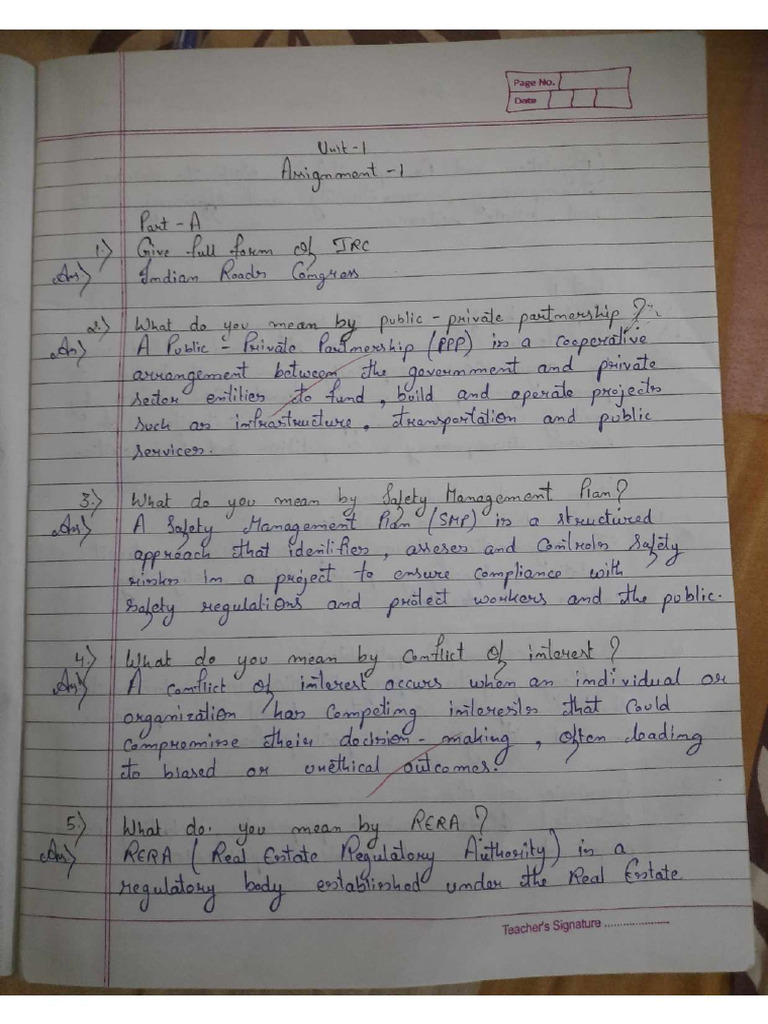 Page No.
Date
Unit-1
Assignment-1
Part-A
1.) Give full form of IRC
Ans) Indian Roads Congress
2.) What do you mean by public-private partnership?
Ans) A Public-Private Partnership (PPP) is a cooperative
arrangement between the government and private
sector entities to fund, build and operate projects
such as infrastructure, transportation and public
services.
3.) What do you mean by Safety Management Plan?
Ans) A Safety Management Plan (SMP) is a structured
approach that identifies, asseses and controls safety
risks in a project to ensure compliance with
safety regulations and protect workers and the public.
4.) What do you mean by conflict of interest?
Ans) A conflict of interest occurs when an individual or
organization has competing interests that could
compromise their decision-making, often leading
to biased or unethical outcomes.
5.) What do you mean by RERA?
Ans) RERA (Real Estate Regulatory Authority) is a
regulatory body established under the Real Estate
Teacher's Signature ....................